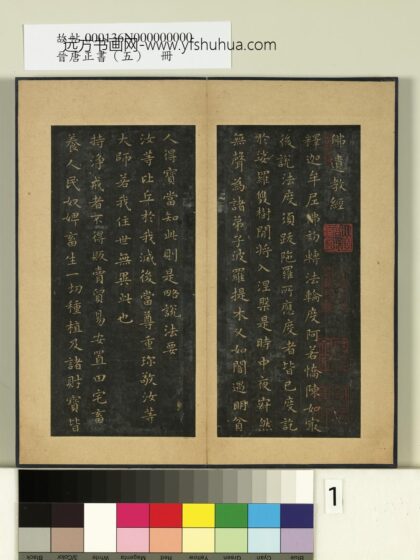 故帖 000136N000000000
远方书画网-www.yfshuhua.com
晉唐正書（五） 冊
佛遺教經
釋迦牟尼佛初轉法輪度阿若憍陳如最
後說法度須跋陁羅所應度者皆已度訖
於娑羅雙樹間將入涅槃是時中夜寂然
無聲為諸弟子波羅提木又如闇遇明貧
人得寶當知此則是略說法要
汝等比丘於我滅後當尊重珎敬汝等
大師若我住世無異此也
持淨戒者不得販賣貿易安置田宅畜
養人民奴婢畜生一切種植及諸財寶皆
1
Black 3/Color White Magenta Red Yellow Green Cyan Blue